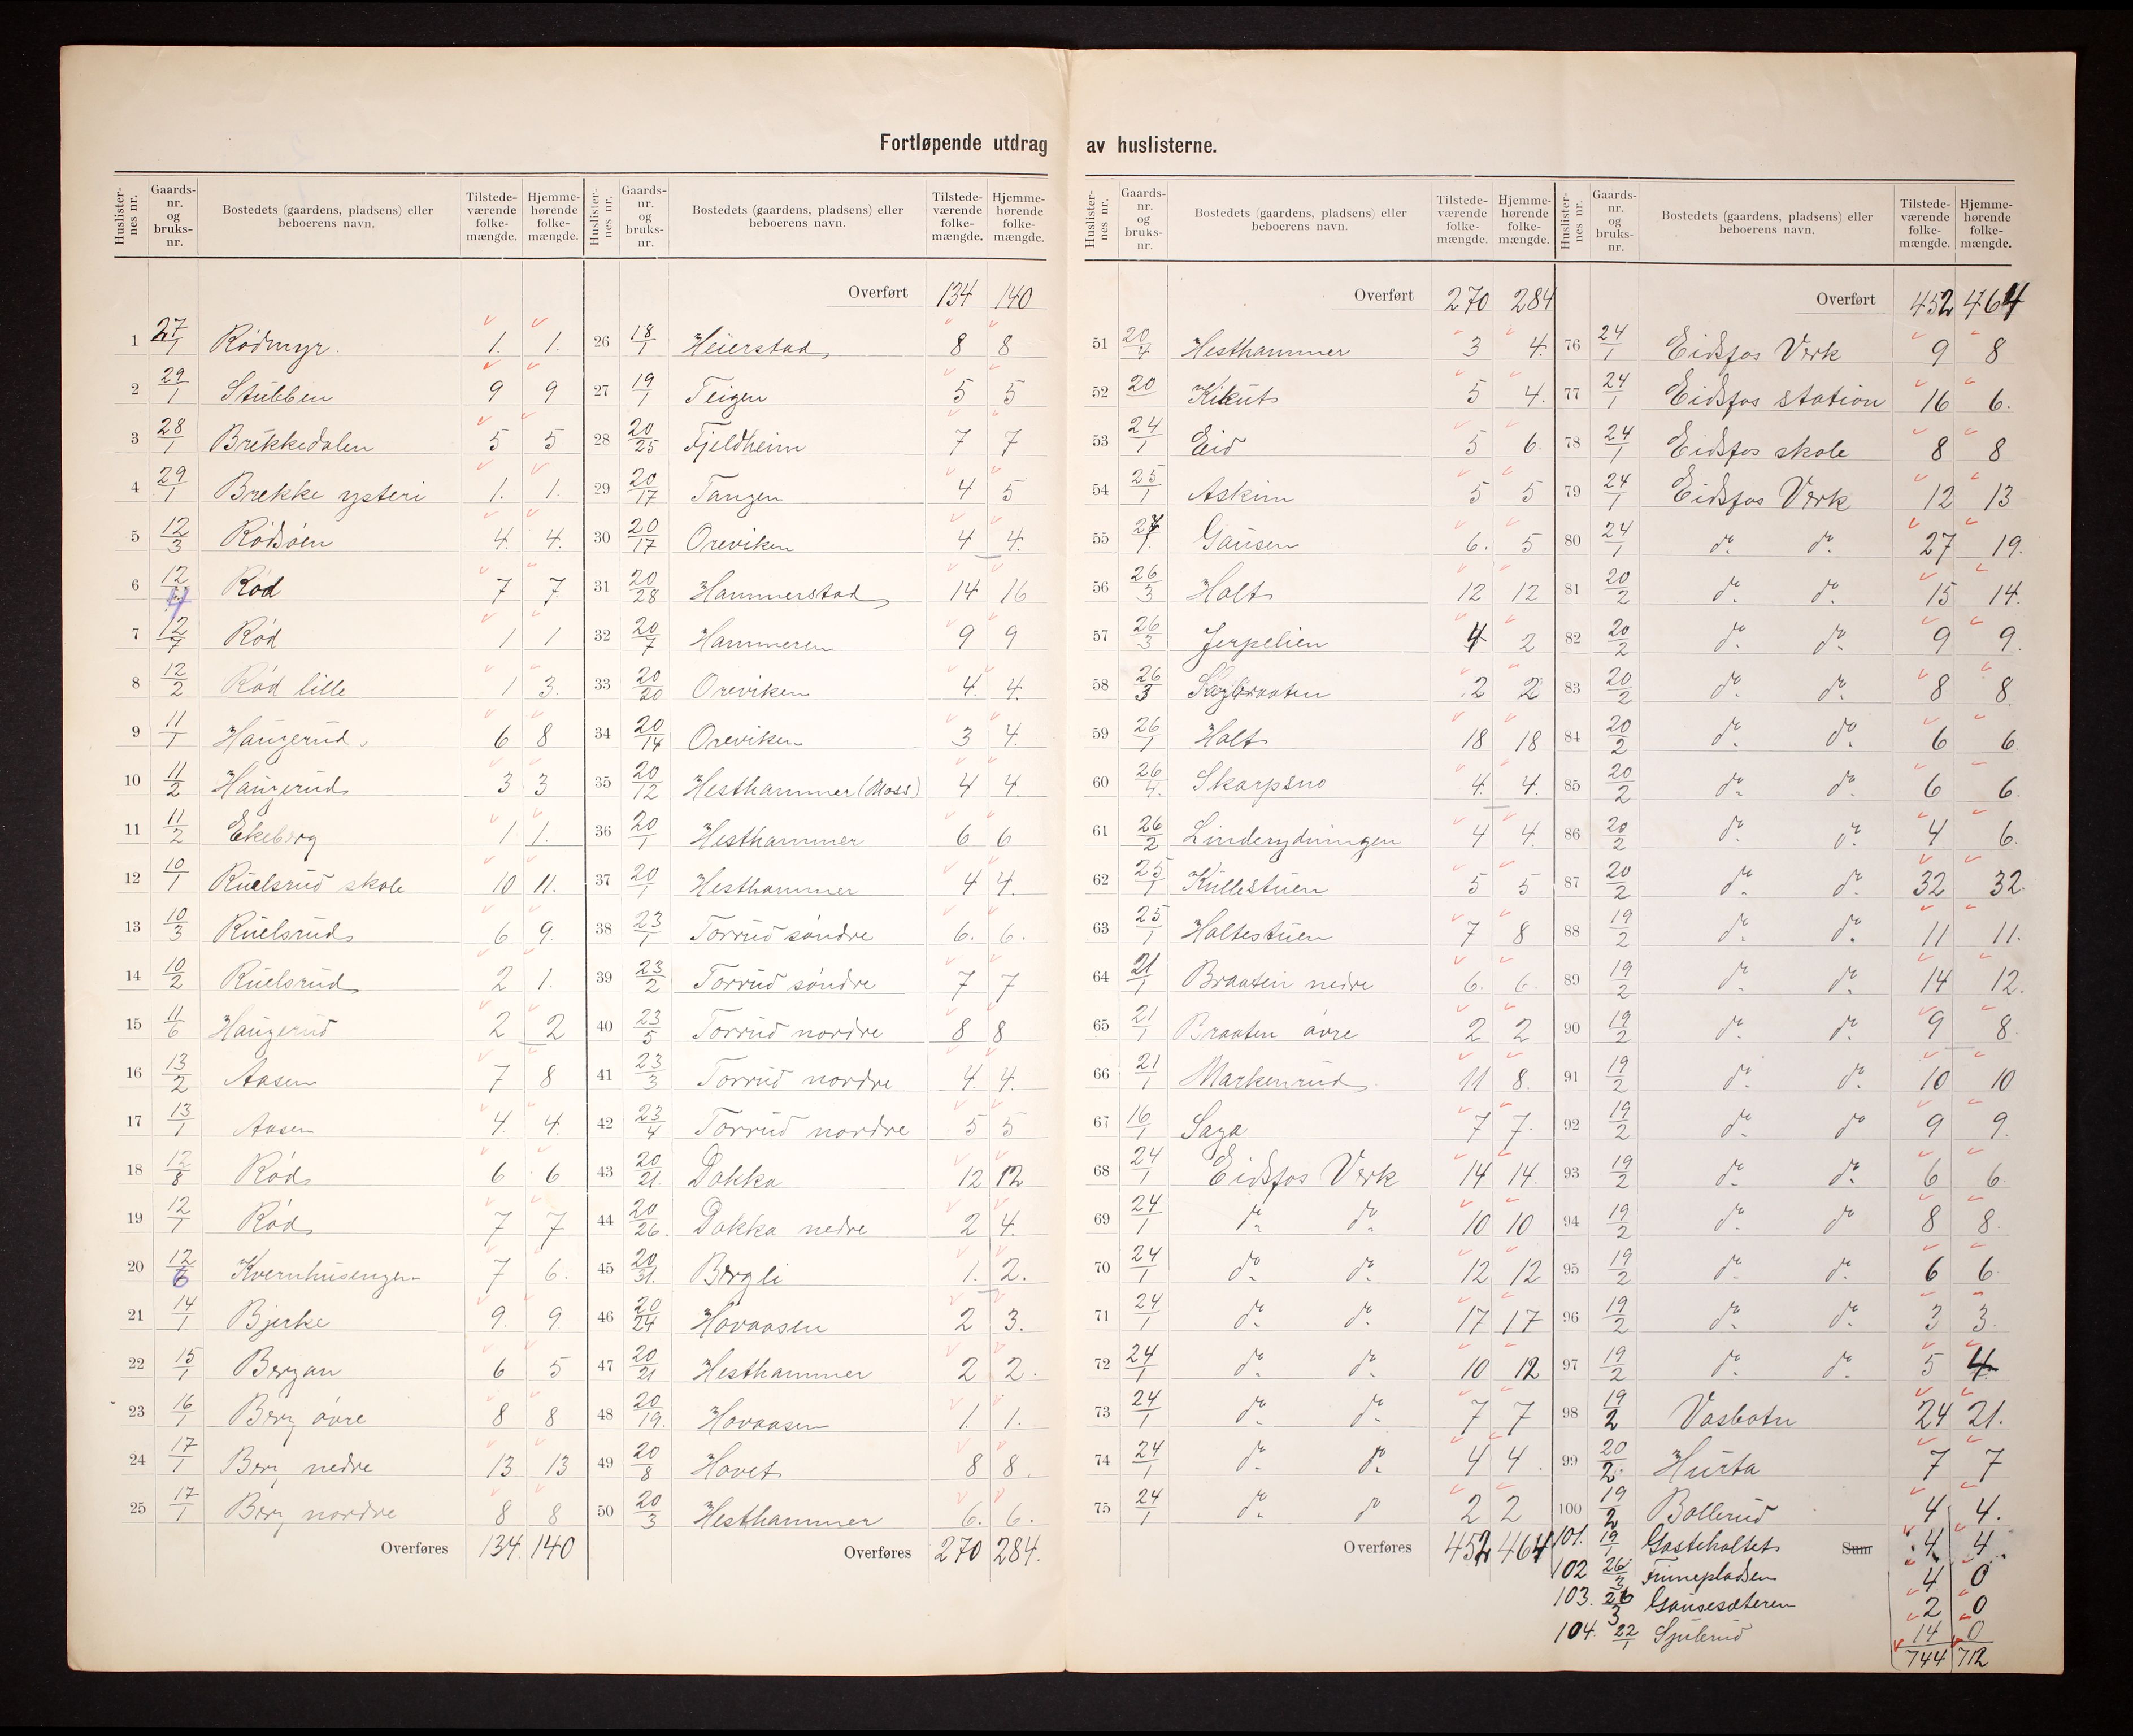 Fortløpende utdrag av huslisterne.
Huslisternes nr. Gaardsnr. og bruksnr. Bostedets (gaardens, pladsens) eller beboerens navn. Tilstedeværende folkemængde. Hjemmehørende folkemængde.
1 27/1 Rødmyr. 1. 1.
2 29/1 Stubben 9 9
3 28/1 Brekkedalen 5 5
4 29/1 Brekke ysteri 1. 1.
5 12/3 Rødsøen 4. 4.
6 12/4 Rød 7 7
7 12/7 Rød 1 1
8 12/2 Rød lille 1 3.
9 11/1 Haugerud. 6 8
10 11/2 Haugerud 3 3
11 11/2 Ekeberg 1 1.
12 10/1 Ruelsrud skole 10 11.
13 10/3 Ruelsrud 6 9.
14 10/2 Ruelsrud 2 1.
15 11/6 Haugerud 2 2
16 13/2 Aasen 7 8
17 13/1 Aasen 4. 4.
18 12/8 Rød 6 6
19 12/1 Rød 7 7
20 12/6 Kvernhusengen 7 6.
21 14/1 Bjerke 9. 9.
22 15/1 Bergan 6 5
23 16/1 Berg øvre 8 8
24 17/1 Berg nedre 13 13
25 17/1 Berg nordre 8 8
Overføres 134. 140
Huslisternes nr. Gaardsnr. og bruksnr. Bostedets (gaardens, pladsens) eller beboerens navn. Tilstedeværende folkemængde. Hjemmehørende folkemængde.
Overført 134 140
26 18/1 Heierstad 8 8
27 19/1 Teigen 5 5
28 20/25 Fjeldheim 7 7
29 20/17 Tangen 4 5
30 20/17 Oreviken 4 4.
31 20/28 Hammerstad 14 16
32 20/7 Hammeren 9 9
33 20/20 Oreviken 4. 4.
34 20/14 Oreviken 3 4.
35 20/12 Hesthammer (Moss) 4 4.
36 20/1 Hesthammer 6 6
37 20/1 Hesthammer 4 4.
38 23/1 Torrud søndre 6. 6.
39 23/2 Torrud søndre 7 7
40 23/5 Torrud nordre 8 8
41 23/3 Torrud nordre 4. 4.
42 23/4 Torrud nordre 5 5
43 20/21. Dokka 12 12
44 20/26. Dokka nedre 2 4.
45 20/31. Bergli 1. 2.
46 20/24 Hovaasen 2 3.
47 20/21 Hesthammer 2 2.
48 20/19. Hovaasen 1. 1.
49 20/8 Hovet 8 8.
50 20/3 Hesthammer 6. 6.
Overføres 270 284.
Huslisternes nr. Gaardsnr. og bruksnr. Bostedets (gaardens, pladsens) eller beboerens navn. Tilstedeværende folkemængde. Hjemmehørende folkemængde.
Overført 270 284
51 20/4 Hesthammer 3 4.
52 20 Kikut 5 4.
53 24/1 Eid 5 6.
54 25/1 Askim 5 5
55 27/1. Gausen 6. 5
56 26/3 Holt 12 12
57 26/3 Jerpelien 4 2
58 26/3 2 2
59 26/1 Holt 18 18
60 26/4. Skarpsno 4. 4.
61 26/2 Linderydningen 4 4.
62 25/1 Kullestuen 5 5
63 25/1 Holtestuen 7 8
64 21/1 Braaten nedre 6. 6.
65 21/1 Braaten øvre 2 2
66 21/1 Markenrud 11 8.
67 16/1 Saga 7 7.
68 24/1 Eidsfos Verk 14 14.
69 24/1 do do 10 10
70 24/1 do do 12 12
71 24/1 do do 17 17
72 24/1 do do 10 12
73 24/1 do do 7 7
74 24/1 do do 4 4.
75 24/1 do do 2 2
Overføres 452 464
Huslisternes nr. Gaardsnr. og bruksnr. Bostedets (gaardens, pladsens) eller beboerens navn. Tilstedeværende folkemængde. Hjemmehørende folkemængde.
Overført 452 464
76 24/1 Eidsfos Verk 9 8
77 24/1 Eidsfos station 16 6.
78 24/1 Eidsfos skole 8 8
79 24/1 Eidsfos Verk 12 13
80 24/1 do do 27 19.
81 20/2 do do 15 14.
82 20/2 do do 9 9.
83 20/2 do do 8 8
84 20/2 do do 6 6.
85 20/2 do do 6 6.
86 20/2 do do 4 6.
87 20/2 do do 32 32.
88 19/2 do do 11 11.
89 19/2 do do 14 12.
90 19/2 do do 9 8.
91 19/2 do do 10 10
92 19/2 do do 9 9.
93 19/2 do do 6 6.
94 19/2 do do 8 8.
95 19/2 do do 6 6.
96 19/2 do do 3 3.
97 19/2 do do 5 4.
98 19/2 Vasbotn 24 21.
99 20/2 Hurta 7 7
100 19/2 Bollerud 4 4.
101. 19/1 Gosteholtet Sum 4 4.
102 26/3 Finnepladsen 4 0
103. 26/3 Gausesæteren 2 0
104. 22/1 Sjulerud 14 0
744 712